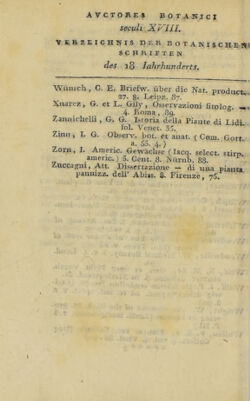 AVCTORES BOTANICI
seculi XVIII.
VERZEICHNIS DER BOTANISCHEN
SCHRIFTEN
des 18 Iahrhunderts.
Wünsch, C. E. Briefw. über die Nat. product.
27. 8. Leipz. 87.
Xuarez, G. et L. Gily, Osservazioni fitolog. —
4. Roma, 89.
Zannichelli, G. G. Istoria della Piante di Lidi.
fol. Venet. 35.
Zinn, I. G. Observ. bot. et anat. (Com. Gott.
a. 55. 4.)
Zorn, I. Americ. Gewächse (Iacq. select. stirp.
americ.) 5. Cent. 8. Nürnb. 88.
Zuccagni, Att. Dissertazione — di una pianta
pannizz. dell' Abiss. 8. Firenze, 75.